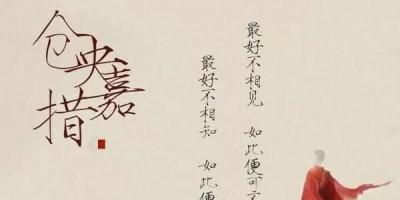 仓央嘉措
最好不相见 如此便可
最好不相知 如此便